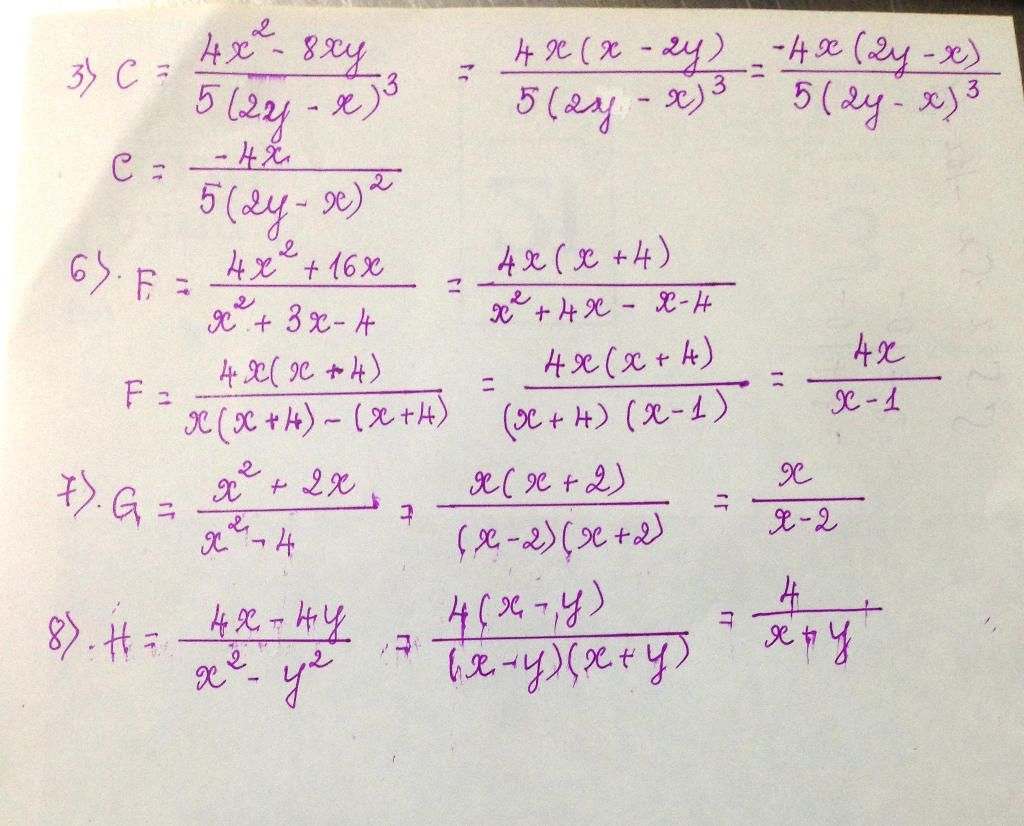 3) C = (4x² - 8xy)/(5(2y - x)³) = (4x(x - 2y))/(5(2y - x)³) = (-4x(2y - x))/(5(2y - x)³)
C = (-4x)/(5(2y - x)²)
6). F = (4x² + 16x)/(x² + 3x - 4) = (4x(x + 4))/(x² + 4x - x - 4)
F = (4x(x + 4))/(x(x + 4) - (x + 4)) = (4x(x + 4))/((x + 4)(x - 1)) = (4x)/(x - 1)
7). G = (x² + 2x)/(x² - 4) = (x(x + 2))/((x - 2)(x + 2)) = x/(x - 2)
8). H = (4x - 4y)/(x² - y²) = (4(x - y))/((x - y)(x + y)) = 4/(x + y)